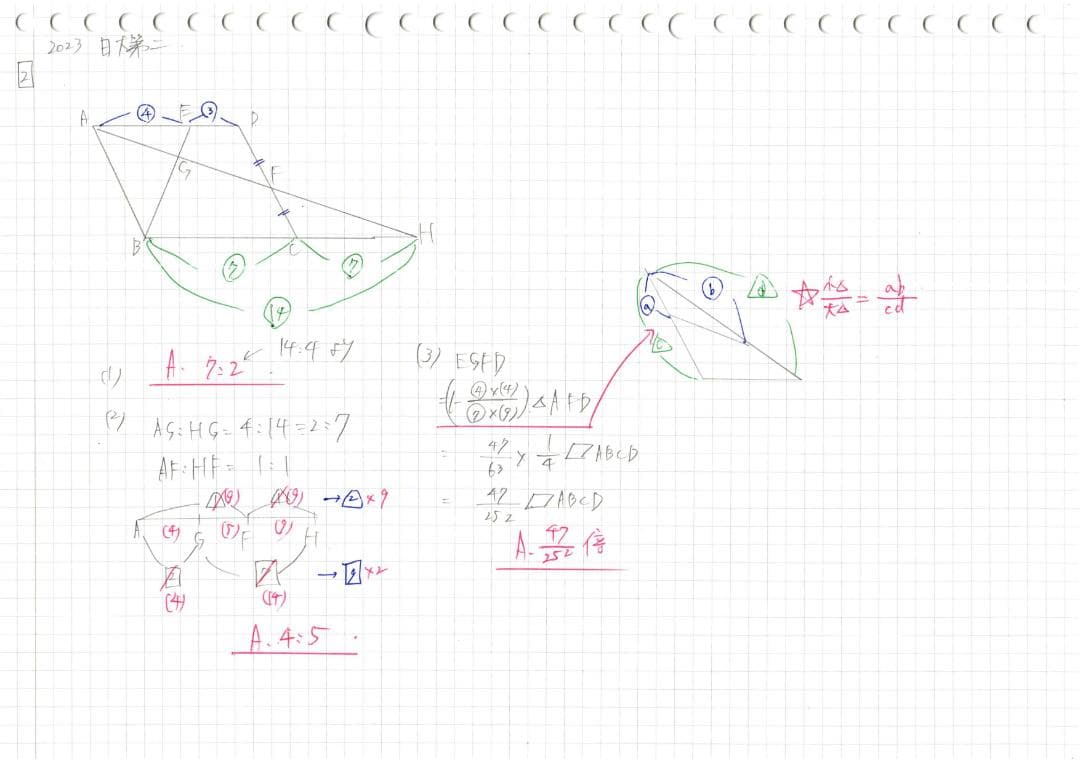 2023 日大第二
2
A ④ E ③ D
G F
B C H
⑦ ⑦
⑭
(1) A. 7:2 ← 14:4 より
(2) AG:HG = 4:14 = 2:7
AF:HF = 1:1
(9) (9) → ② × 9
A (4) G (5) F (9) H
2 7 → 9 × 2
(4) (14)
A. 4:5
(3) EGFD
= (1 - ④×(4) / ⑦×(9)) △AFD
= 47/63 × 1/4 ▱ABCD
= 47/252 ▱ABCD
A. 47/252 倍
ⓐ ⓑ c d
☆ 小△/大△ = ab/cd